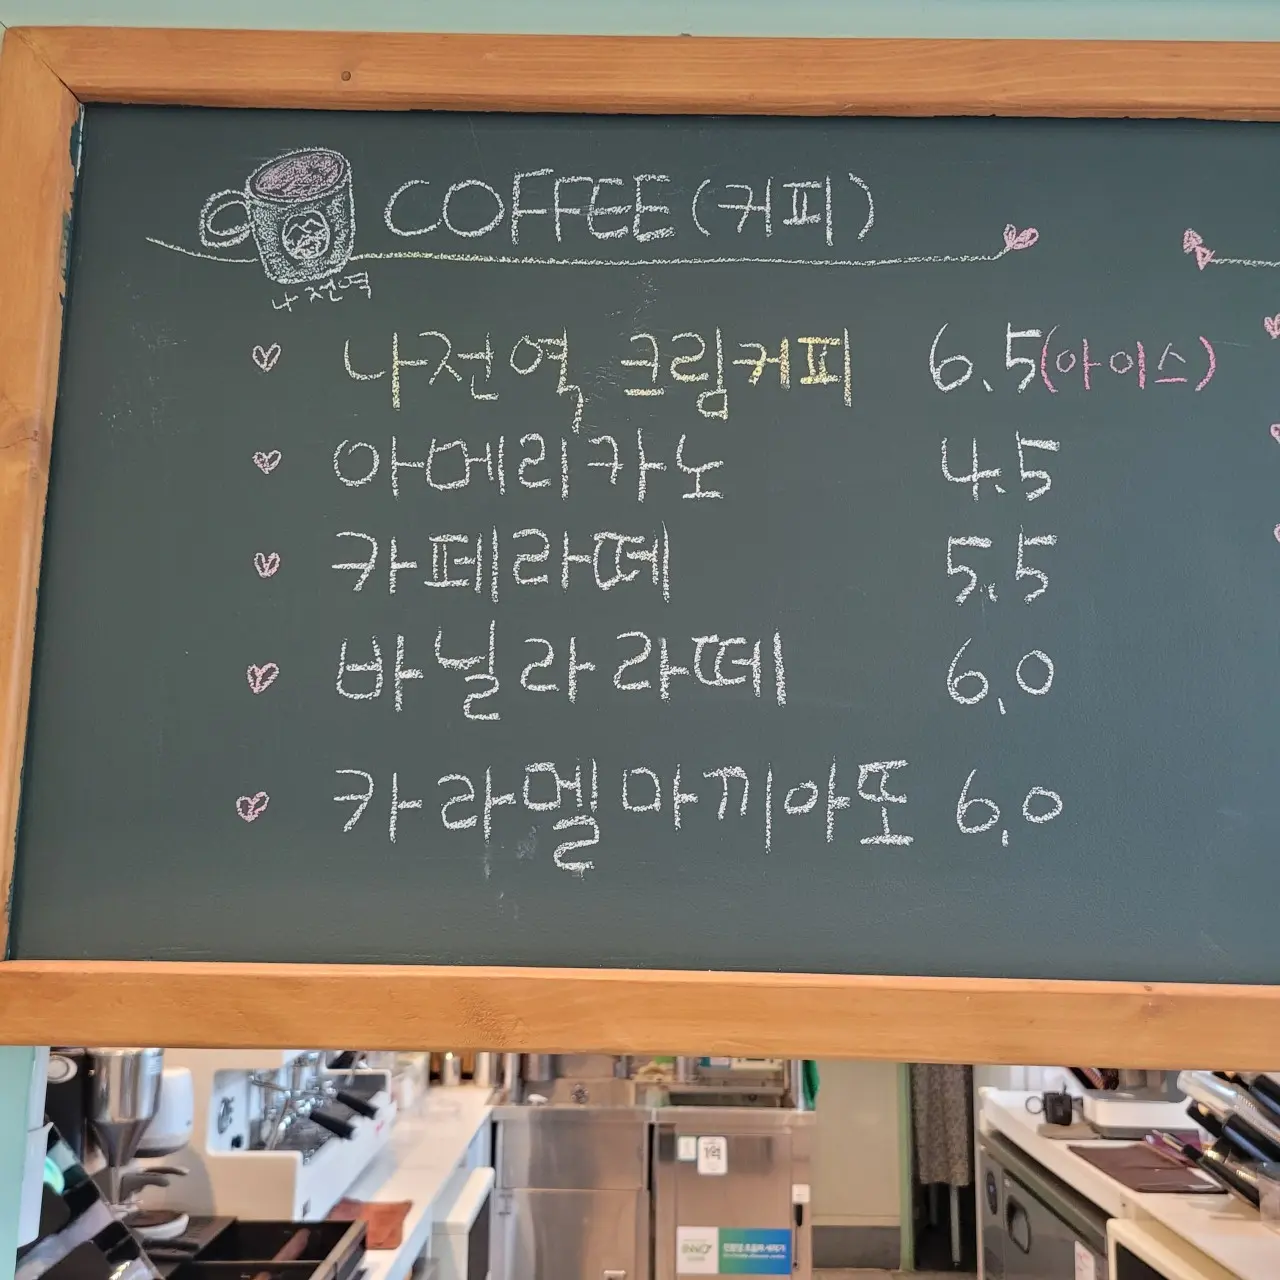 COFFEE(커피)
나전역
나전역 크림커피 6.5(아이스)
아메리카노 4.5
카페라떼 5.5
바닐라라떼 6.0
카라멜마끼아또 6.0